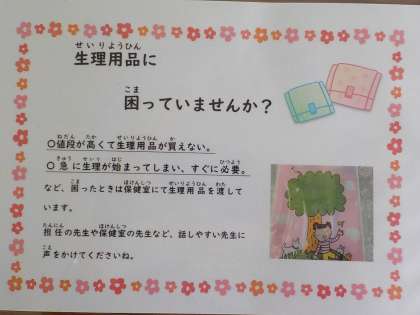 生理用品に
困っていませんか?
○値段が高くて生理用品が買えない。
○急に生理が始まってしまい、すぐに必要。
など、困ったときは保健室にて生理用品を渡して
います。
担任の先生や保健室の先生など、話しやすい先生に
声をかけてくださいね。